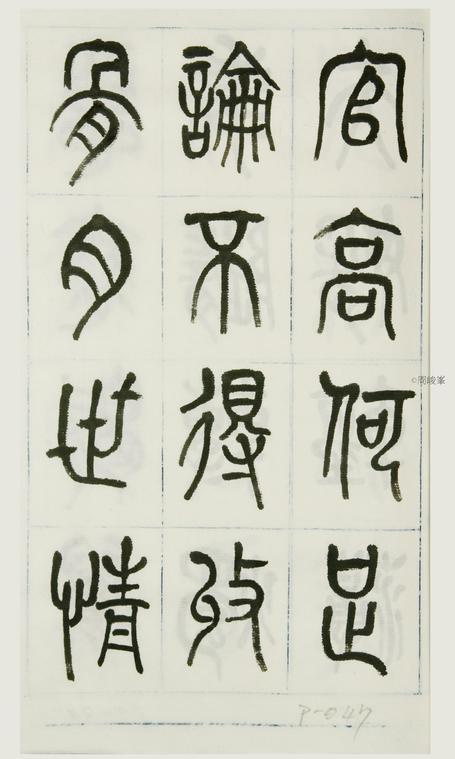 官高何足
論不得收
骨肉世情
©周峻峯
P-047